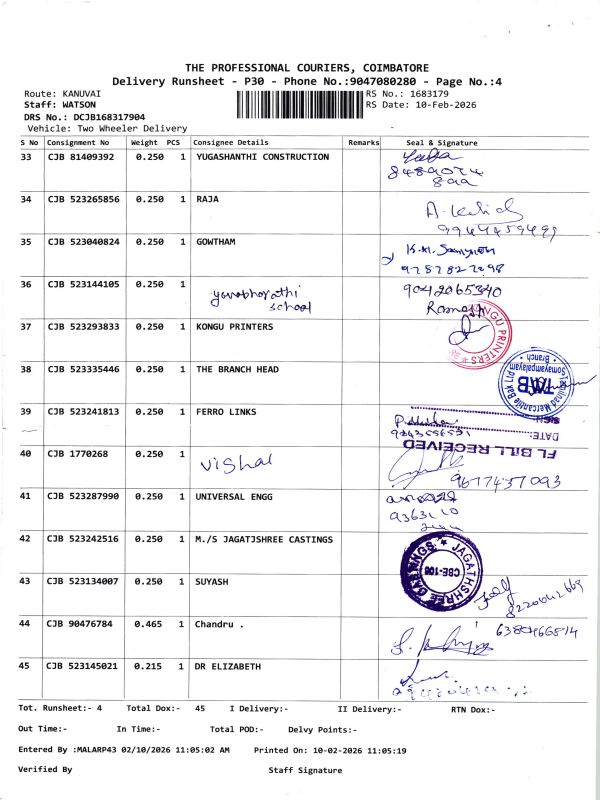 THE PROFESSIONAL COURIERS, COIMBATORE
Delivery Runsheet - P30 - Phone No.:9047080280 - Page No.:4
Route: KANUVAI RS No.: 1683179
Staff: WATSON RS Date: 10-Feb-2026
DRS No.: DCJB168317904
Vehicle: Two Wheeler Delivery
S No Consignment No Weight PCS Consignee Details Remarks Seal & Signature
33 CJB 81409392 0.250 1 YUGASHANTHI CONSTRUCTION
8489074
899
34 CJB 523265856 0.250 1 RAJA
9944459499
35 CJB 523040824 0.250 1 GOWTHAM
9787827298
36 CJB 523144105 0.250 1 yuvabharathi school 9042065340
37 CJB 523293833 0.250 1 KONGU PRINTERS
KONGU PRINTERS
38 CJB 523335446 0.250 1 THE BRANCH HEAD
Tamilnad Mercantile Bank Ltd
TMB
Somayampalayam
Branch
39 CJB 523241813 0.250 1 FERRO LINKS
SIGN
DATE:
FL BILL RECEIVED
40 CJB 1770268 0.250 1 Vishal
9677437093
41 CJB 523287990 0.250 1 UNIVERSAL ENGG
42 CJB 523242516 0.250 1 M./S JAGATJSHREE CASTINGS
JAGATHSHREE CASTINGS
CBE-108
43 CJB 523134007 0.250 1 SUYASH
8220042669
44 CJB 90476784 0.465 1 Chandru .
6380466814
45 CJB 523145021 0.215 1 DR ELIZABETH
Tot. Runsheet:- 4 Total Dox:- 45 I Delivery:- II Delivery:- RTN Dox:-
Out Time:- In Time:- Total POD:- Delvy Points:-
Entered By :MALARP43 02/10/2026 11:05:02 AM Printed On: 10-02-2026 11:05:19
Verified By Staff Signature